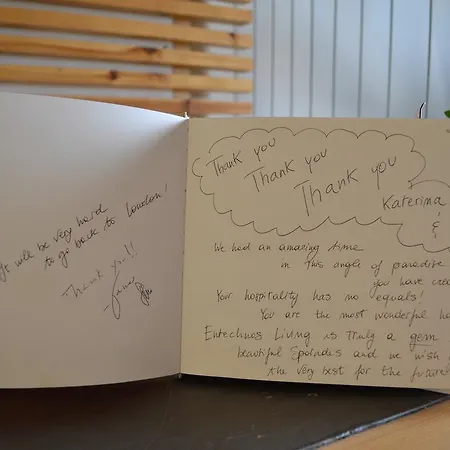 It will be very hard
to go back to London!
Thank you!!
Thank you
Thank you
Thank you
Katerina
&
We had an amazing time
in this angle of paradise
you have crea
Your hospitality has no equals!
You are the most wonderful ho
Entechnos Living is truly a gem
beautiful Sporades and we wish
the very best for the future